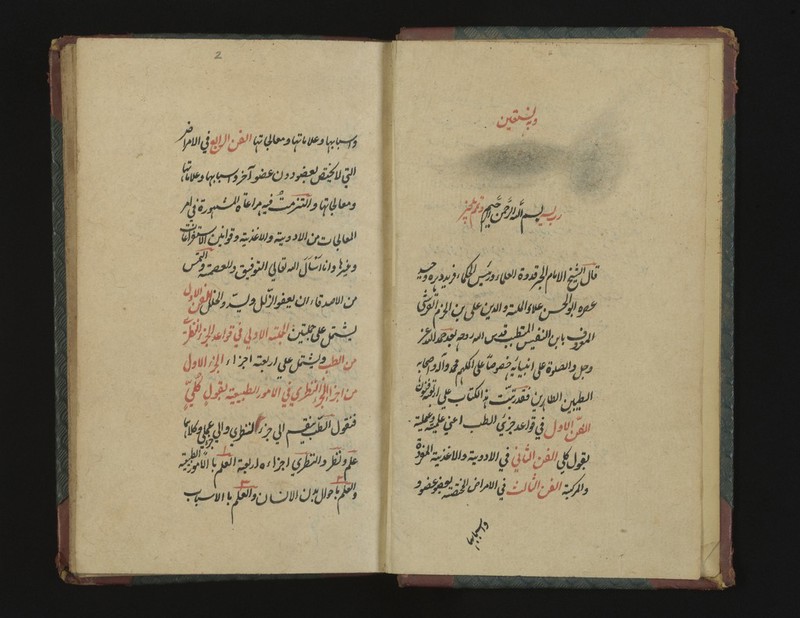 وبه نستعين
رب يسر بسم الله الرحمن الرحيم وتمم بالخير
قال الشيخ الامام الحبر قدوة العلماء ورئيس الحكماء فريد دهره وحيد
عصره ابو الحسن علاء الملة والدين علي بن ابي الحزم القرشي
المعروف بابن النفيس المتطبب قدس الله روحه بعد حمد الله عز
وجل والصلوة على انبيائه خصوصا على اكملهم محمد وآله واصحابه
الطيبين الطاهرين فقد رتبت هذا الكتاب على اربعة فنون
الفن الاول في قواعد جزئي الطب اعني علمية وعملية
بقول كلي الفن الثاني في الادوية والاغذية المفردة
والمركبة الفن الثالث في الامراض المختصة بعضو عضو و
واسبابها
2
واسبابها وعلاماتها ومعالجاتها الفن الرابع في الامراض
التي لا يختص بعضو دون عضو آخر واسبابها وعلاماتها
ومعالجاتها والتزمت فيه مراعاة المشهورة في امر
المعالجات من الادوية والاغذية وقوانين الاستفراغات
وغيرها وانا اسأل الله تعالى التوفيق والعصمة والتمس
من الاصدقاء ان يعفو الزلل ويسد والخلل الفن الاول
يشتمل على جملتين الجملة الاولى في قواعد الجزء النظري
من الطب ويشتمل على اربعة اجزاء الجزء الاول
من اجزاء الجزء النظري في الامور الطبيعية بقول كلي
فنقول الطب ينقسم الى جزء النظري والى جزء عملي وكلاهما
علم ونظر والنظري اجزاءه اربعة العلم بالامور الطبيعية
والعلم باحوال بدن الانسان والعلم بالاسباب